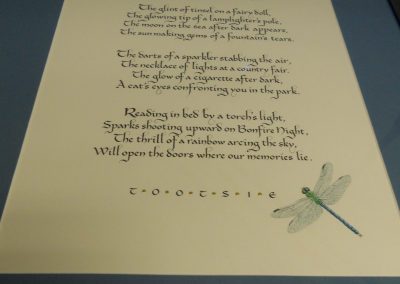 The glint of tinsel on a fairy doll,
The glowing tip of a lamplighter's pole,
The moon on the sea after dark appears,
The sun making gems of a fountain's tears.
The darts of a sparkler stabbing the air,
The necklace of lights at a country fair.
The glow of a cigarette after dark,
A cat's eyes confronting you in the park.
Reading in bed by a torch's light,
Sparks shooting upward on Bonfire Night,
The thrill of a rainbow arcing the sky,
Will open the doors where our memories lie.
T·O·O·T·S·I·E